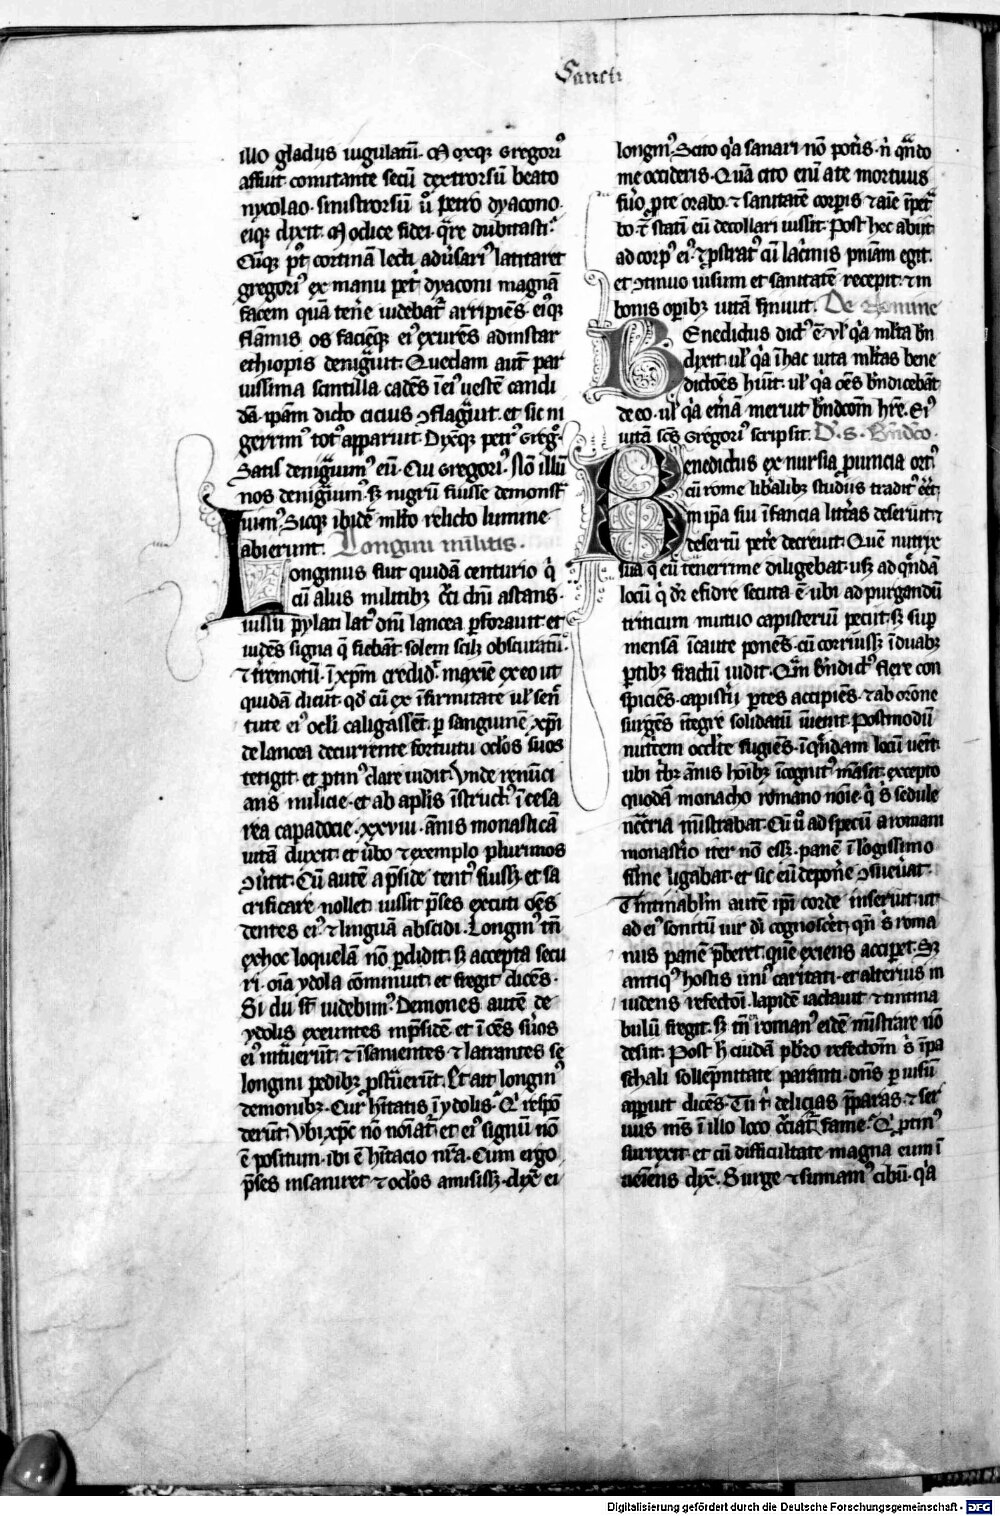 Sancti
illo gladius iugulatū. Moxqꝫ gregoriꝰ
affuit comitante secū dextrorsū beato
nycolao. sinistrorsū uͦ petro dyacono.
eiqꝫ dixit. Modice fidei. qͣre dubitasti?
Cūqꝫ pꝰt cortinā lecti aduͥsariꝰ latitaret
gregoriꝰ ex manu petͥ dyaconi magnā
facem quā tenͥe uidebatͬ arripiēs. eiꝰqꝫ
flāmis os facieqꝫ eiꝰ exurēs ad instar
ethiopis denigͣuit. Quedam autͫ par
uissima scintilla cadēs ī eiꝰ uestē candi
dā. ipam dicto cicius ꝯflagͣuit. et sic ni
gerrimꝰ totꝰ apparuit. Dixitqꝫ petrꝰ greg̊.
Satis denigͣuimꝰ eū. Cui gregoriꝰ. Nō illū
nos denigͣuimꝰ. sꝫ nigrū fuisse demonstͣ
uimꝰ. Sicqꝫ ibidē mlto relicto lumine
abierunt. Longini militis.
Longinus fuit quidā centurio qͥ
cū aliis militibꝫ cͥci dn̄i astans.
iussu pylati latꝰ dn̄i lancea ꝑforauit. et
uidēs signa q̄ fiebāt. solem scilꝫ obscuratū.
⁊ tͬremotū. ī xp̄m credidͭ. maxīe ex eo ut
quidā dicūt. qd̓ cū ex īfirmitate ul̓ senͨ
tute eiꝰ oclī caligassēt. ꝑ sanguinē xp̄i
de lancea decurrente fortuitu oclōs suos
tetigit. et ꝓtinꝰ clare uidit. Vnde renūci
ans milicie. et ab aplis īstructꝰ ī cesa
rea capadocie. xxviii. ānis monasticā
uitā duxit. et uͦbo ⁊ exemplo plurimos
ꝯuͥtit. Cū autē a pͥside tentꝰ fuissꝫ. et sa
crificare nollet. iussit pͥses excuti oēs
dentes eiꝰ. ⁊ linguā abscidi. Longinꝰ tn̄
ex hoc loquelā nō ꝑdidit. sꝫ accepta secu
ri. oīa ydola cōminuit. et fregit dicēs.
Si dii sͭ uidebimꝰ. Demones autē de
ydolis exeuntes in pͥsidē et ī oēs suͦos
eiꝰ intͣuerūt. ⁊ īsanientes ⁊ latrantes se
longini pedibꝫ pstͣuerūt. Et ait longinꝰ
demonibꝫ. Cur hͥtatis ī ydolis? Qͥ respō
derūt. Vbi xpc̄ nō noīatͬ. et eiꝰ signū nō
ē positum. ibi ē hͥtacio nrͣa. Cum ergo
pͥses insaniret ⁊ oclōs amisissꝫ. dixͭ ei
longinꝰ. Scito qͥa sanari nō potͥs. nͥ qn̄do
me occideris. Quā cito enī a te mortuus
fuͦo ꝓ te orabo. ⁊ sanitatē corpis ⁊ aīe īpetͣ
bo. ⁊ statī eū decollari iussit. Post hec abiit
ad corpꝰ eiꝰ. ⁊ pstratꝰ cū lacͥmis pniam egit.
et ꝯtinuo uisum et sanitatē recepit. ⁊ in
bonis opibꝫ uitā finiuit. De nomine
Benedictus dictꝰ ē. ul̓ qͥa mlta bn̄
dixit. ul̓ qͥa ī hac uita mltas bene
dictiōes hūit. ul̓ qͥa oēs bn̄dicebāt
de eo. ul̓ qͥa etn̄ā meruit bn̄dcōm hr̄e. Eiꝰ
uitā scs̄ gregoriꝰ scripsit. D̓. s. Bn̄dc̄o.
Benedictus ex nursia ꝓuincia ortꝰ
cū rome libalibꝫ studiis traditꝰ eēt.
in ip̄a sui īfancia litt̄as deseruit. ⁊
desertū petͥe decreuit. Quē nutrix
sua q̄ eū tenerrime diligebat. usꝫ ad qn̄dā
locū q̄ dͬ efidre secuta ē. ubi ad purgandū
triticum mutuo capisteriū peciit. sꝫ suꝑ
mensā īcaute ponēs. cū corruissꝫ ī duabꝫ
ꝑtibꝫ fractū uidit. Qͣm bn̄dictꝰ flere con
spiciēs. capistͥii ꝑtes accipiēs. ⁊ ab orōne
surgēs ītegre solidatū inuenit. Postmodū
nutͥcem occlte fugiēs. ī qn̄dam locū uenit.
ubi tͥbꝫ ānis hoībꝫ īcognitꝰ māsit. excepto
quodā monacho romano noīe. qͥ sͥ sedule
necc̄ria mīstrabat. Cū uͦ ad specū a romani
monastͥio iter nō essꝫ. panē ī lōgissimo
fune ligabat. et sic eū deponͥe ꝯsueuͥat.
Tintinablm̄ autē ip̄i corde inseruit. ut
ad eiꝰ sonitū uir dī cognosceret qn̄ sͥ roma
nus panē pͥberet. quē exiens acciperet. Sꝫ
antiqꝰ hostis uniꝰ caritati. et alterius in
uidens refectōi. lapidē iactauit ⁊ tintina
bulū fregit. sꝫ tn̄ romanꝰ eidē mīstrare nō
desiit. Post h̓ cuidā pbro refectōm sͥ ī pa
schali sollēpnitate paranti. dn̄s ꝑ uisū
apparuit dicēs. Tu tͥ delicias pͥparas ⁊ ser
uus ms̄ ī illo loco cͣciatͬ fame. Qͥ ꝓtinꝰ
surrexit et cū difficultate magna eum ī
ueniens dixͭ. Surge ⁊ sumamꝰ cibū. qͥa
Digitalisierung gefördert durch die Deutsche Forschungsgemeinschaft - DFG